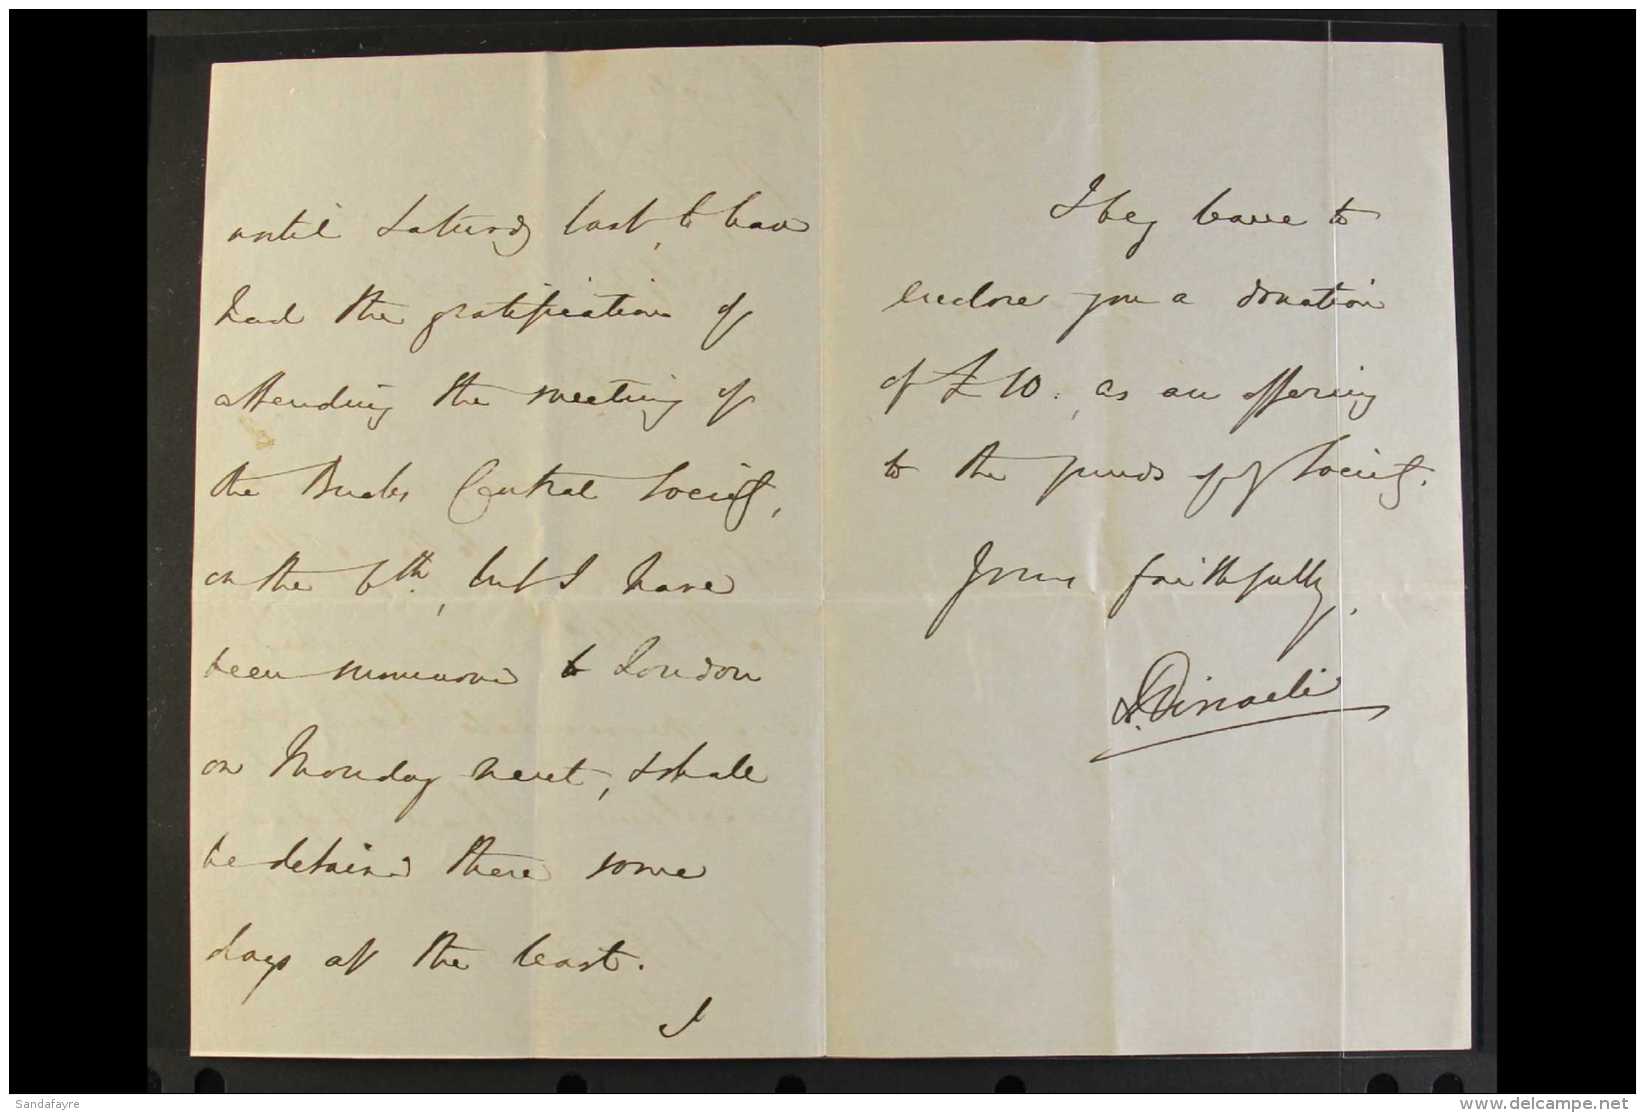 until Saturday last, to have
had the gratification of
attending the meeting of
the Bucks Central Society,
on the 6th, but I have
been summoned to London
on Monday next, & shall
be detained there some
days at the least.
I
I beg leave to
enclose you a donation
of £10:, as an offering
to the funds of y Society.
Yours faithfully,
B. Disraeli
Sandafayre
www.delcampe.net